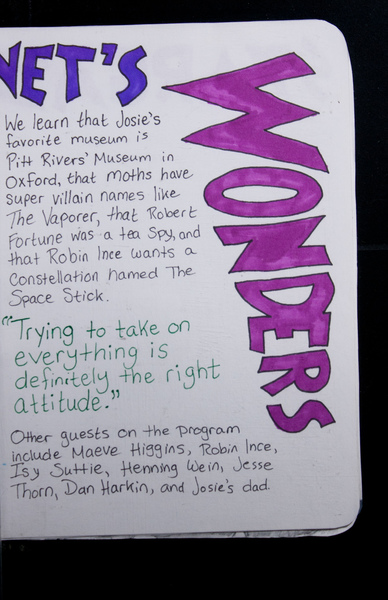 NET'S
WONDERS
We learn that Josie's
favorite museum is
Pitt Rivers' Museum in
Oxford, that moths have
super villain names like
The Vaporer, that Robert
Fortune was a tea spy, and
that Robin Ince wants a
constellation named The
Space Stick.
"Trying to take on
everything is
definitely the right
attitude."
Other guests on the program
include Maeve Higgins, Robin Ince,
Isy Suttie, Henning Wein, Jesse
Thorn, Dan Harkin, and Josie's dad.